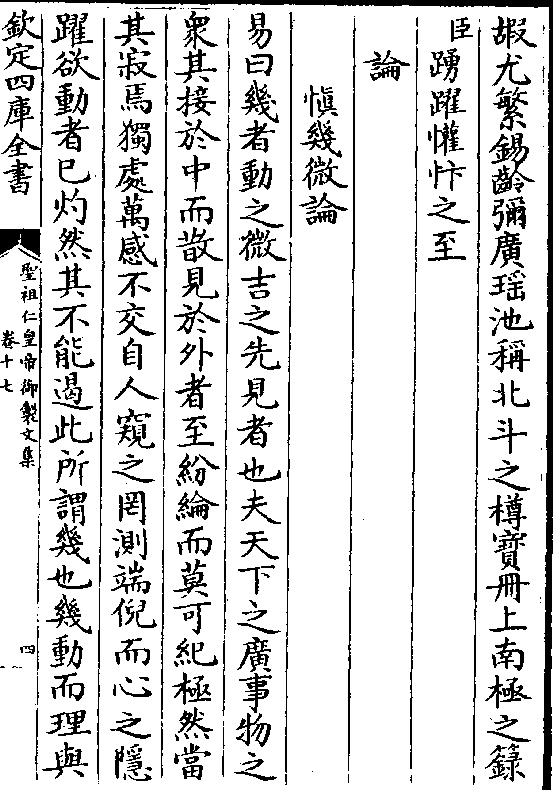 嘏尤繁錫齡彌廣瑶池稱北斗之樽寶冊上南極之籙
臣踴躍懽忭之至
論
慎幾微論
易曰幾者動之微吉之先見者也夫天下之廣事物之
衆其接於中而散見於外者至紛綸而莫可紀極然當
其寂焉獨處萬感不交自人窺之罔測端倪而心之隱
躍欲動者已灼然其不能遏此所謂幾也幾動而理與
欽定四庫全書
聖祖仁皇帝御製文集
卷十七
四